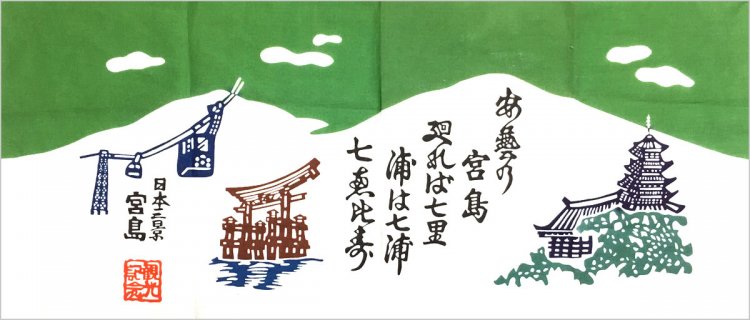 安藝乃
宮島
廻れば七里
浦は七浦
七恵比寿
日本三景
宮島
観光
記念